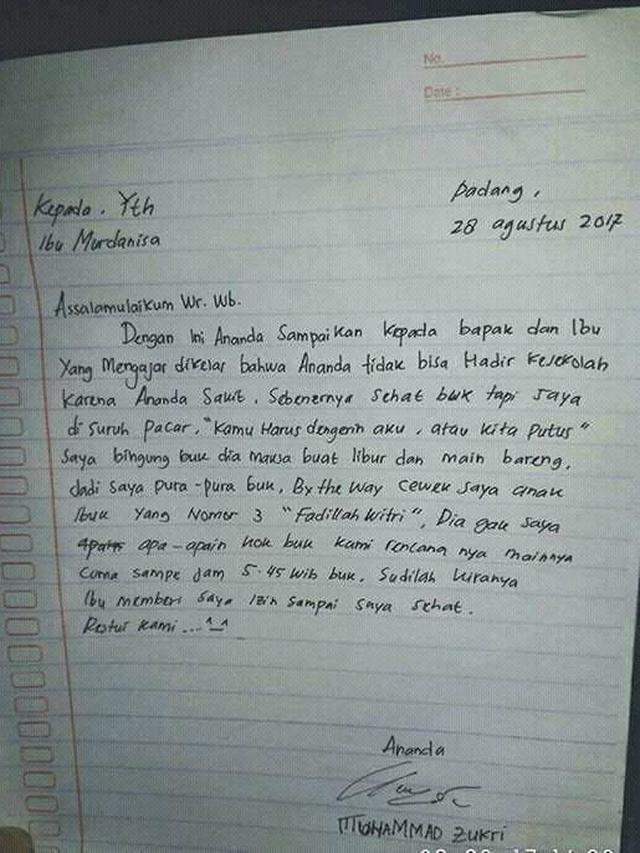 No.
Date :
Kepada. Yth
Ibu Murdanisa
Padang,
28 agustus 2017
Assalamulaikum Wr. Wb.
Dengan Ini Ananda Sampaikan Kepada bapak dan Ibu
Yang Mengajar dikelas bahwa Ananda tidak bisa Hadir Kesekolah
Karena Ananda Sakit. Sebenernya sehat buk tapi saya
di suruh Pacar, "Kamu Harus dengerin aku, atau Kita Putus"
Saya bingung buk dia maksa buat libur dan main bareng,
Jadi saya pura-pura buk, By the way cewek saya anak
Ibuk Yang Nomor 3 "Fadillah Witri", Dia gak saya
apa-apain kok buk kami rencana nya mainnya
Cuma sampe Jam 5.45 Wib buk. Sudilah kiranya
Ibu memberi saya Izin sampai saya sehat.
Restui Kami...^_^
Ananda
MUHAMMAD ZUKRI